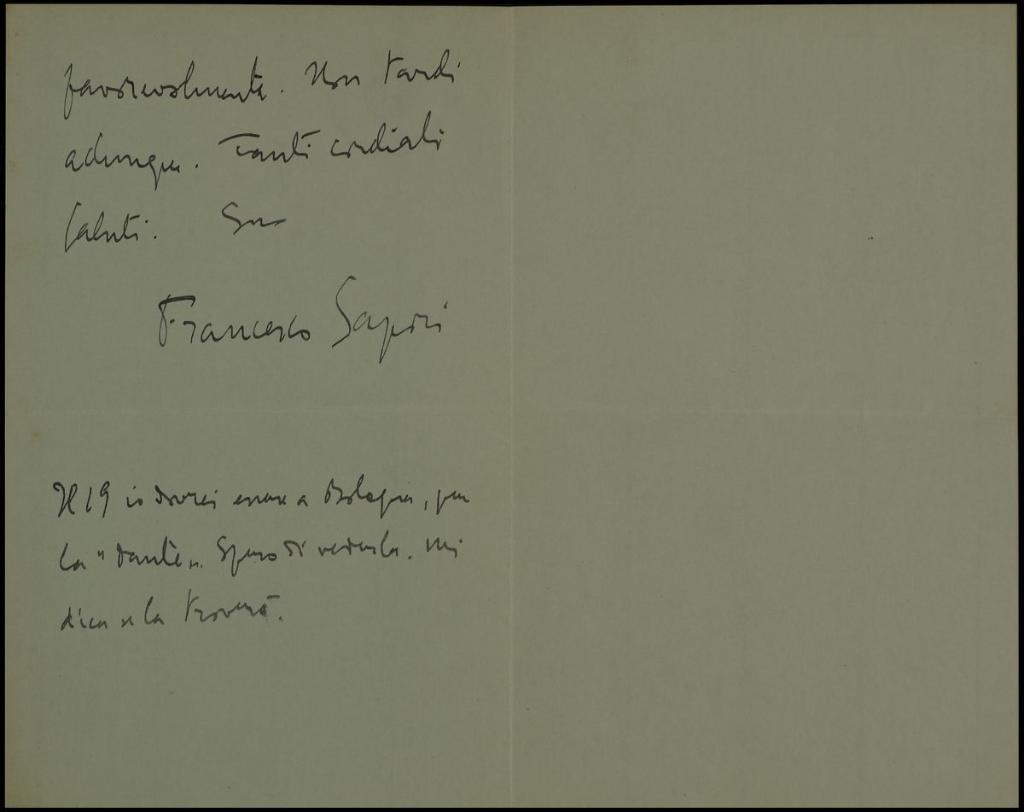 favorevolmente. Non tardi
adunque. Tanti cordiali
saluti. Suo
Francesco Sapori
Il 19 io dovrei essere a Bologna, per
la "Dante". Spero di vederla. Mi
dica se la troverò.